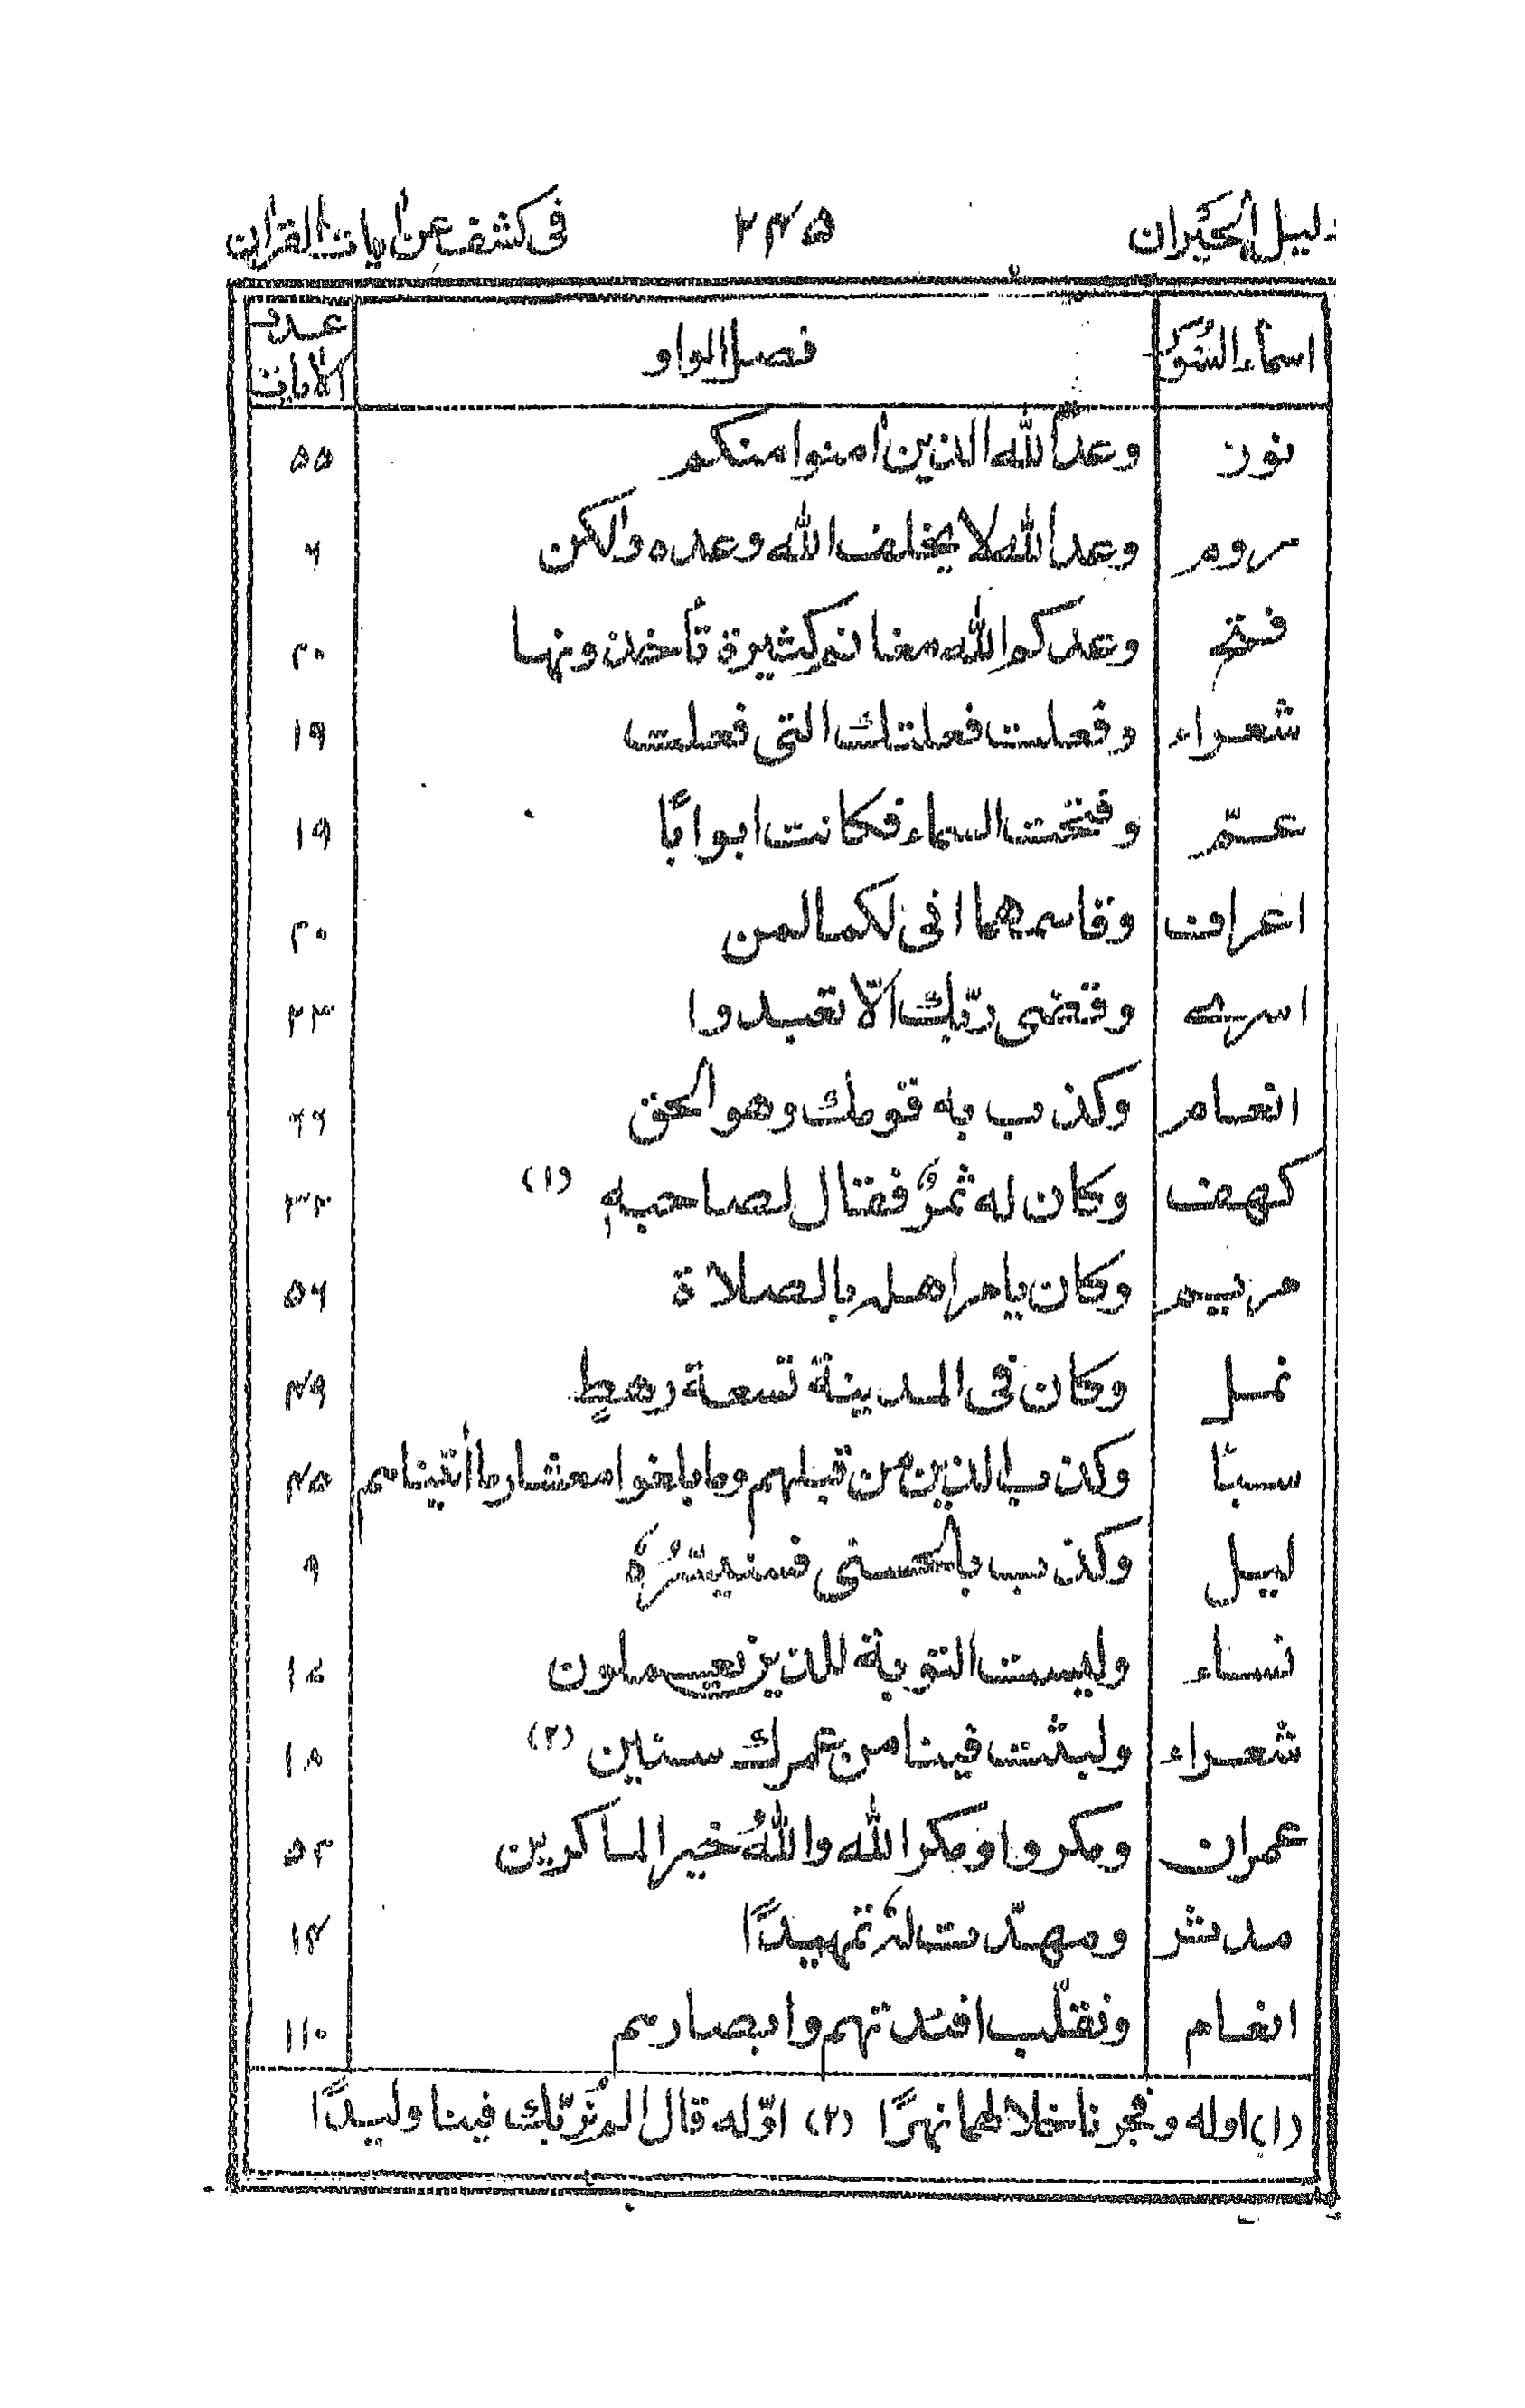 دليل الحيران ٢٤٥ فى كشف عن اٰيات القراٰن
اسماء السّور فصل الواو عدد الاٰيات
نور وعد الله الذين اٰمنوا منكم ٥٥
روم وعد الله لا يخلف الله وعده ولٰكن ٦
فتح وعدكم الله مغانم كثيرة تأخذونها ٢٠
شعراء وفعلت فعلتك التى فعلت ١٩
عمّ وفتحت السماء فكانت ابوابًا ١٩
اعراف وقاسمهما انى لكما لمن ٢٠
اسرى وقضى ربّك الّا تعبدوا ٢٣
انعام وكذب به قومك وهو الحق ٦٦
كهف وكان له ثمرٌ فقال لصاحبهٖ (١) ٣٣
مريم وكان يامر اهله بالصلاة ٥٦
نمل وكان فى المدينة تسعة رهطٍ ٤٩
سبأ وكذب الذين من قبلهم وما بلغوا معشار ما اٰتيناهم ٤٥
ليل وكذب بالحسنى فسنيسّرُهٗ ٩
نساء وليست التوبة للذين يعملون ١٨
شعراء ولبثت فينا من عمرك سنين (٢) ١٨
عمران ومكروا ومكر الله واللهُ خير الماكرين ٥٣
مدثر ومهّدت لهٗ تمهيدًا ١٤
انعام ونقلّب افئدتهم وابصارهم ١١٠
(١) اوله وفجرنا خلالهما نهرًا (٢) اوّله قال الم نُرَبّك فينا وليدًا